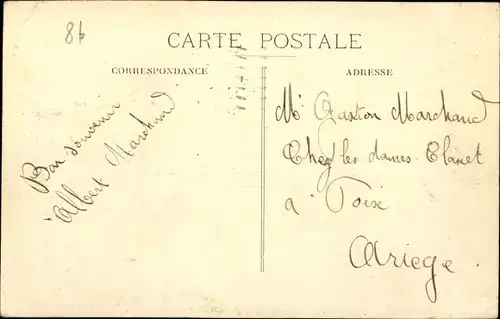 86
CARTE POSTALE
CORRESPONDANCE
Bon souvenir
Albert Marchand
ADRESSE
Mr Gaston Marchand
Chez les dames Clanet
à Foix
Ariege.